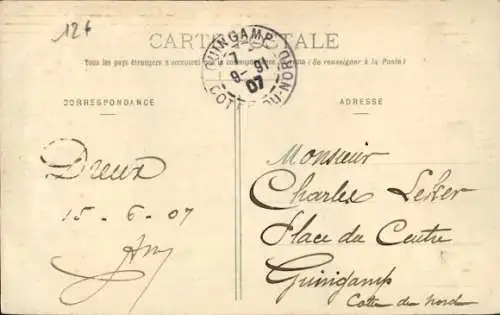 126
CARTE POSTALE
Tous les pays étrangers n'acceptent pas la correspondance (Se renseigner à la Poste)
GUINGAMP
07
COTES-DU-NORD
CORRESPONDANCE
ADRESSE
Dreux
15-6-07
Monsieur
Charles
Place du Centre
Guingamp
Cotte du Nord